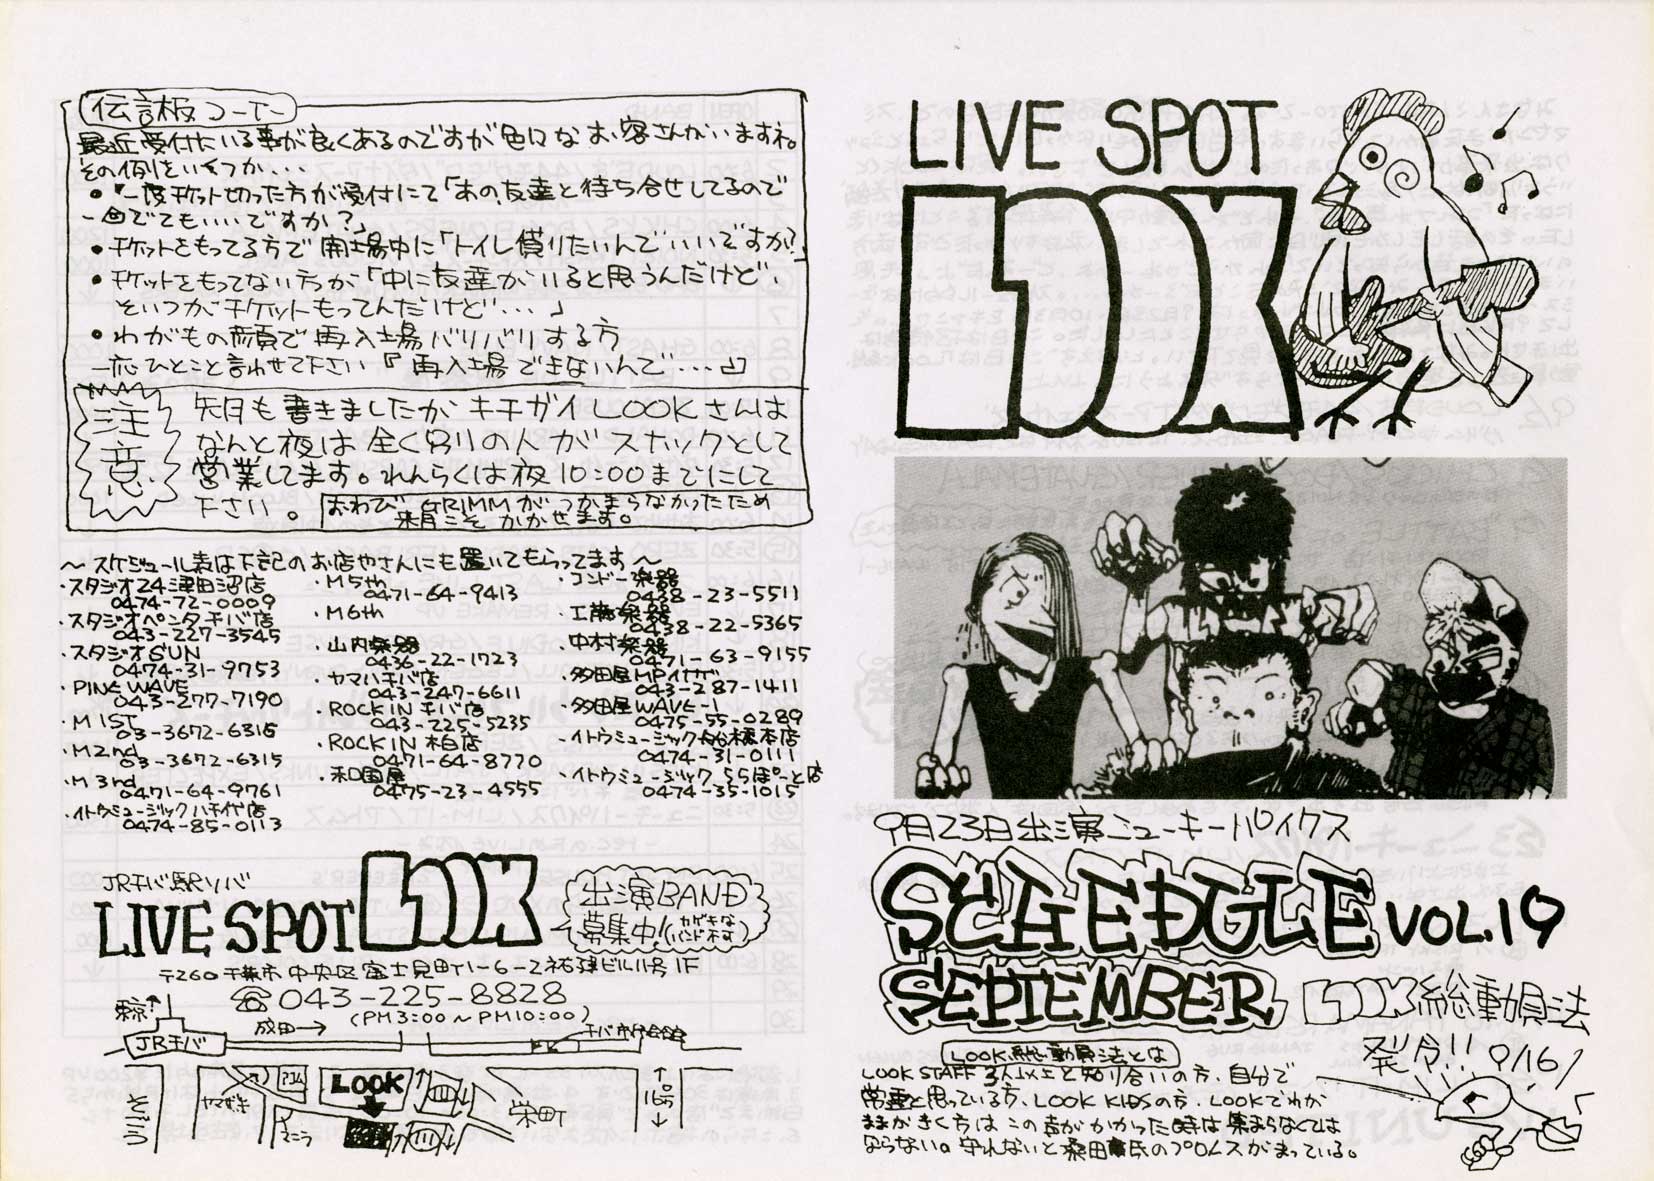 伝言板コーナー
最近受付にいる事が良くあるのですが色々なお客さんがいますネ。
その例をいくつか...
・一度チケット切った方が受付にて「あの、友達と待ち合せしてるので
一回でても...ですか?」
・チケットをもってる方で開場中に「トイレ借りたいんで...いいですか?」
・チケットをもってない方が「中に友達がいると思うんだけど、
そいつがチケットもってんだけど...」
・わがもの顔で再入場バリバリする方
一応ひとこと言わせて下さい『再入場できないんで...』
注意
先月も書きましたがキチガイLOOKさんは
なんと夜は全く別の人がスナックとして
営業してます。れんらくは夜10:00までにして
下さい。
おわび GRIMMがつかまらなかったため
来月こそかかせます。
～スケジュール表は下記のお店やさんにも置いてもらってます～
・スタジオ24津田沼店
0474-72-0009
・スタジオペンタ千バ店
043-227-3545
・スタジオSUN
0474-31-9753
・PINK WAVE
043-277-7190
・M1ST
03-3672-6315
・M2nd
03-3672-6315
・M3rd
0471-64-9761
・イトウミュージック八千代店
0474-85-0113
・M5th
0471-64-9413
・M6th
・山内楽器
0436-22-1723
・ヤマハ千バ店
043-247-6611
・ROCKIN千バ店
043-225-5235
・ROCKIN柏店
0471-64-8770
・和国屋
0475-23-4555
・コンドー楽器
0438-23-5511
・工藤楽器
0438-22-5365
・中村楽器
0471-63-9155
・多田屋MPイナゲ
043-287-1411
・多田屋WAVE-1
0475-55-0289
・イトウミュージック船橋本店
0474-31-0111
・イトウミュージックららぽーと店
0474-35-1015
JR千バ駅ソバ
LIVE SPOT LOOK
出演BAND
募集中!(カゲキなバンド求む)
〒260 千葉市中央区富士見町1-6-2 祐建ビル11号1F
☎043-225-8828
(PM3:00～PM10:00)
東京↑
成田→
JR千バ
千バ市民会館
そごう
ヤマザキ
LOOK
栄町
16号
LIVE SPOT
LOOK
9月23日出演ニューキーパイクス
SCHEDULE VOL.19
SEPTEMBER
LOOK総動員法
発令!! 9/16
LOOK総動員法とは
LOOK STAFF 3人以上と知り合いの方、自分で
常連と思っている方、LOOK KIDSの方、LOOKでわが
ままがきく方はこの声がかかった時は集まらなくては
ならない。守れないと桑田氏のプロレスがまっている。